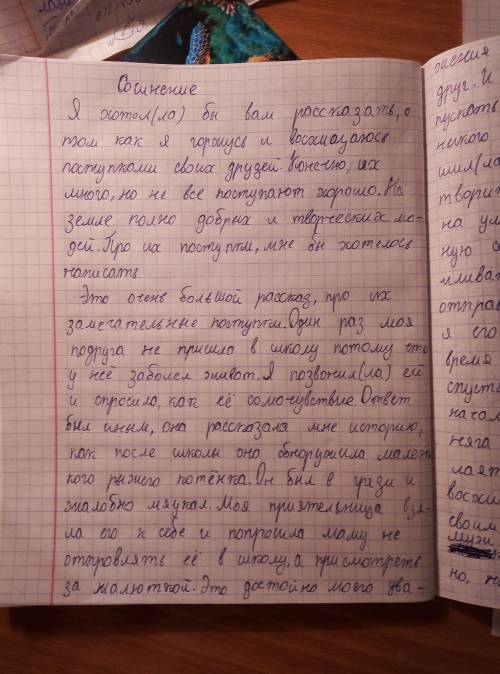 Сочинение
Я хотел(ла) бы вам рассказать, о
том как я горжусь и восхищаюсь
поступками своих друзей. Конечно, их
много, но не все поступают хорошо. На
земле полно добрых и творческих лю-
дей. Про их поступки, мне бы хотелось
написать.
Это очень большой рассказ, про их
замечательные поступки. Один раз моя
подруга не пришла в школу потому что
у неё заболел живот. Я позвонил(ла) ей
и спросила, как её самочувствие. Ответ
был иным, она рассказала мне историю,
как после школы она обноружила мален
кого рыжего котёнка. Он был в грязи и
жалобно мяукал. Моя приятельница взя-
ла его к себе и попросила маму не
отправлять её в школу, а присмотреть
за малюткой. Это достойно моего ува-
жения
друг. И
пускать
некого
шил(ла
творит
на ул
ную с
пливат
отправ
я его
время
спуст
начал
няга
лает
восхи
своим
но, н